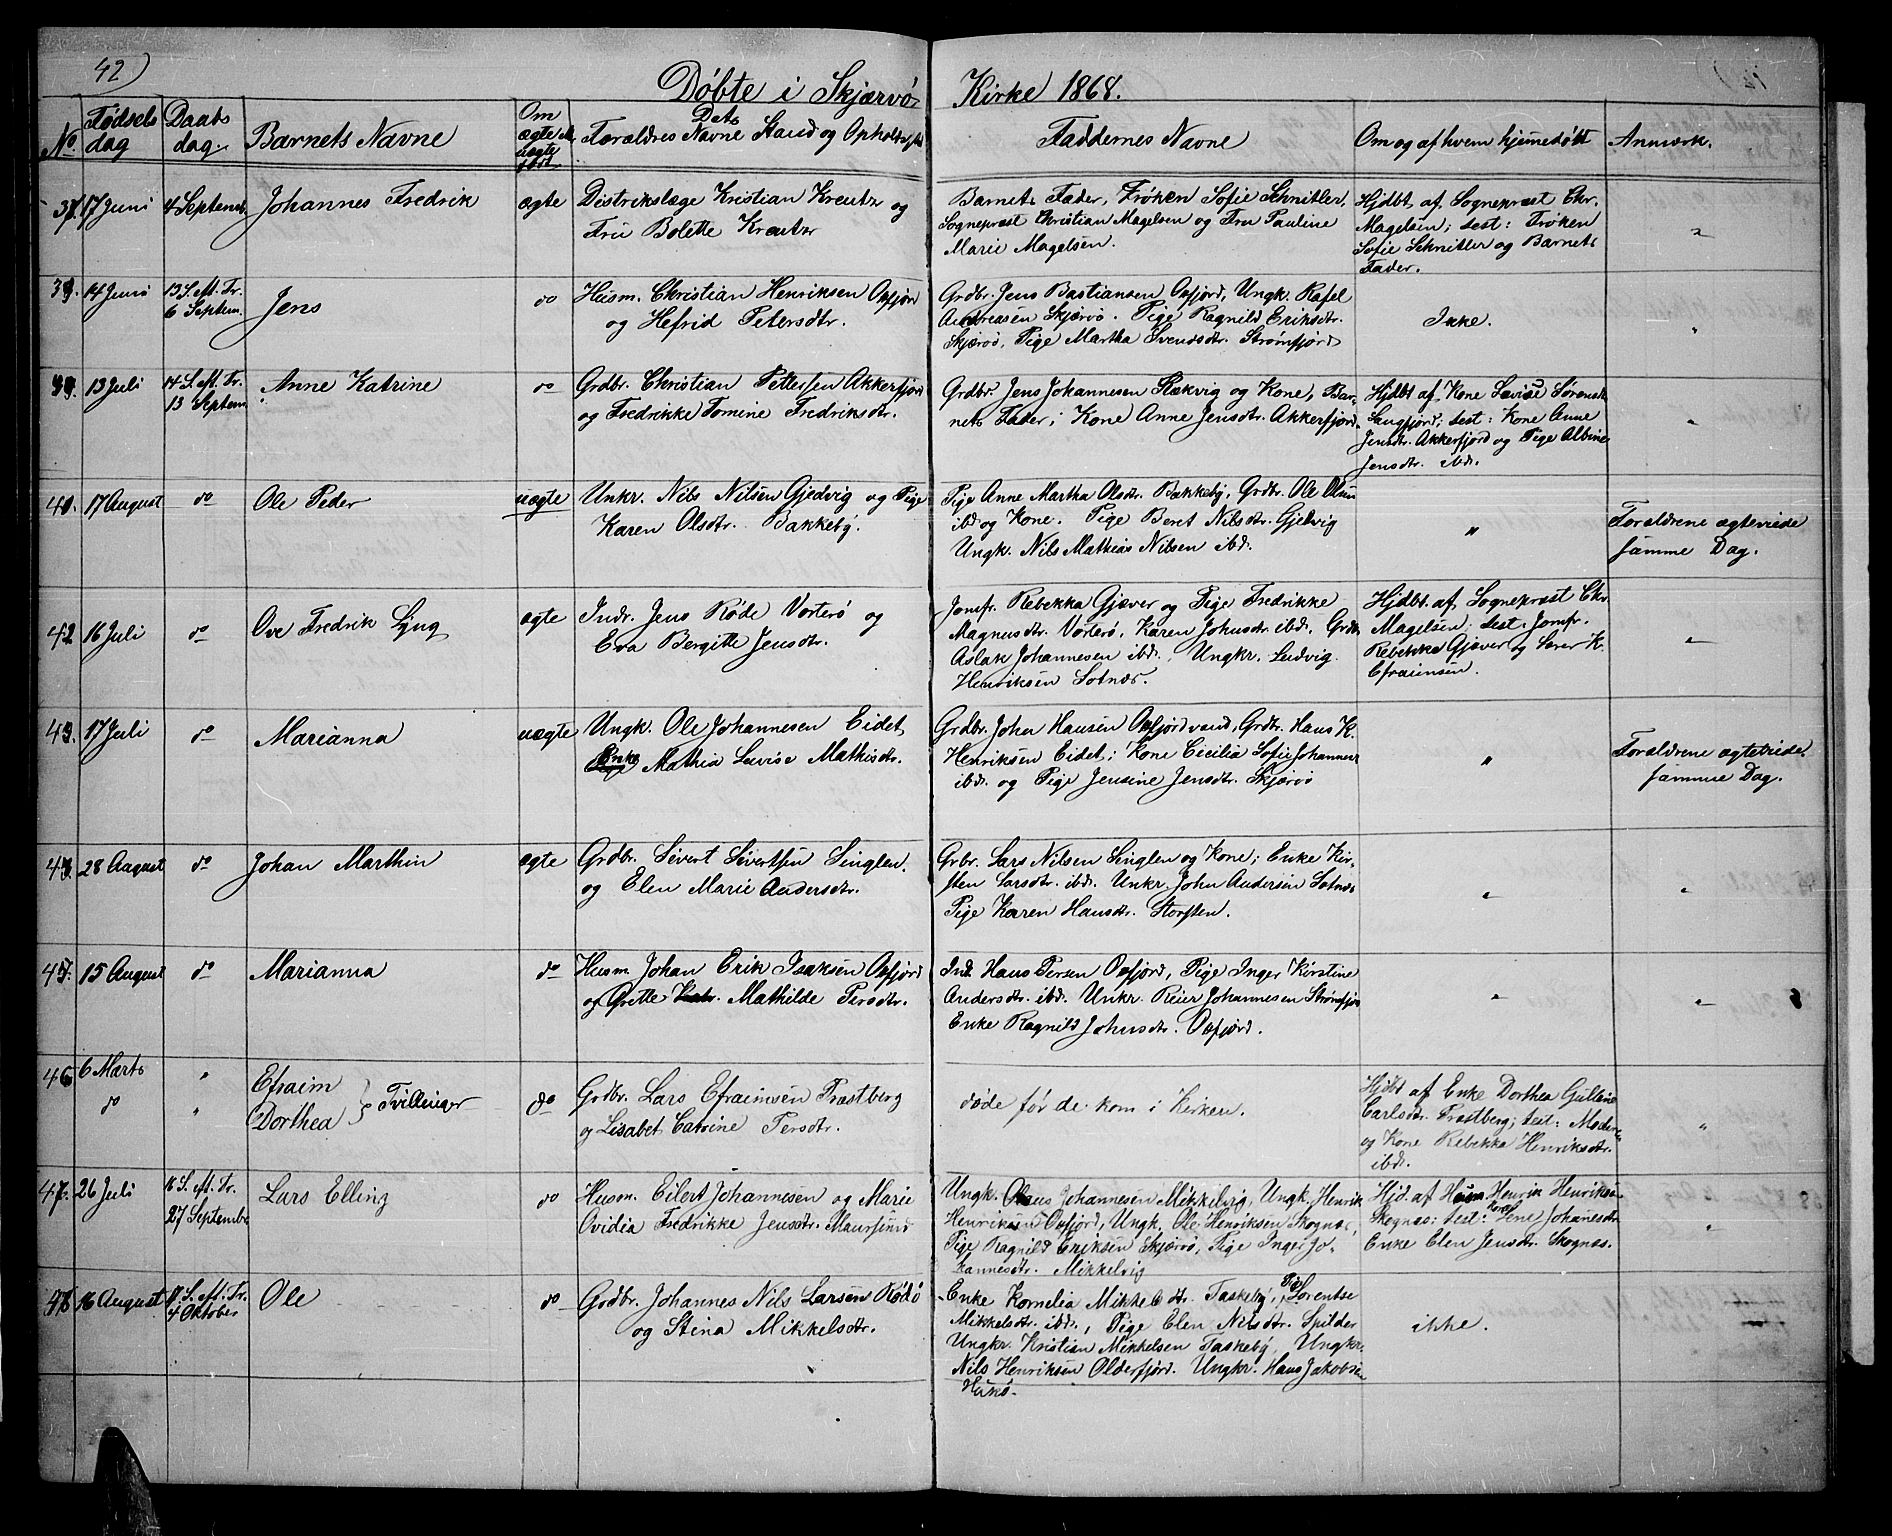 42)
Døbte i Skjærvø Kirke 1868.
No. Fødsels dag Daabs dag. Barnets Navne Om ægte el. uægte født Dets Forældres Navne Stand og Opholdssted Faddernes Navne Om og af hvem hjemmedøbt Anmærk.
37. 17 Juni 4 Septemb. Johannes Fredrik ægte Distrikslæge Kristian Kreutz og
Fru Bolette Kreutz
Barnets Fader, Frøken Sofie Schnitler,
Sognepræst Christian Magelsen og Fru Pauline
Marie Magelsen.
Hjdbt. af Sognepræst Chr.
Magelsen; test: Frøken
Sofie Schnitler og Barnets
Fader.
"
14 Juni 13 S. e. Tr.
6 Septem. Jens do Husm. Christian Henriksen Oxfjord
og Hefrid Petersdtr.
Grdbr. Jens Bastiansen Oxfjord, Ungk. Rafel
Andreasen Skjærvø. Pige Ragnild Eriksdtr.
Skjærvø, Pige Martha Svendsdtr. Strømfjord
Ikke.
"
39. 13 Juli 14 S. e. Tr.
13 Septem. Anne Katrine do Grdbr. Christian Pettersen Akkerfjord
og Fredrikke Tomine Fredriksdtr.
Grdbr. Jens Johannesen Rækvig og Kone, Bar-
nets Fader; Kone Anne Jensdtr. Akkerfjord.
Hjdbt af Kone Lovise Sørensdtr
Langfjord; test: Kone Anne
Jensdtr. Akkerfjord og Pige Albine
Jensdtr. ibd.
"
40. 17 August do Ole Peder uægte Unkr. Nils Nilsen Gjedvig og Pige
Karen Olsdtr. Bakkeby.
Pige Anne Martha Olsdtr. Bakkeby, Grdbr. Ole Olsen
ibd. og Kone. Pige Beret Nilsdtr. Gjedvig
Ungk. Nils Mathias Nilsen ibd.
"
Forældrene ægteviede
samme Dag.
42 16 Juli do Ove Fredrik Ljng ægte Indr. Jens Røde Vorterø og
Eva Bergitte Jensdtr.
Jomfr. Rebekka Gjæver og Pige Fredrikke
Magnusdtr. Vorterø, Karen Johnsdtr ibd. Grdbr.
Aslak Johannesen ibd., Ungkr. Ludvig
Henriksen Sotnæs.
Hjdbt. af Sognepræst Chr.
Magelsen; test. Jomfr.
Rebekka Gjæver og Lærer K.
Efraimsen.
"
43. 17 Juli do Marianna uægte Ungk. Ole Johannesen Eidet,
Enke Mathia Lovise Mathisdtr.
Grdbr. John Hansen Oxfjordvand, Grdbr. Hans K.
Henriksen Eidet; Kone Cecilia Sofie Johannes
ibd. og Pige Jensine Jensdtr. Skjærvø
"
Forældrene ægteviede
samme Dag.
28 August do Johan Marthin ægte Grdbr. Sivert Sivertsen Singlen.
og Elen Marie Andersdtr.
Grbr. Lars Nilsen Singlen og Kone; Enke Kir-
sten Larsdtr. ibd. Unkr. John Andersen Sotnæs
Pige Karen Hansdtr. Storsten.
"
15 August do Marianna do Husm Johan Erik Isaksen Oxfjord
og Grette Mathilde Persdtr.
Ind. Hans Persen Oxfjord, Pige Inger Kirstine
Andersdtr. ibd. Unkr. Reier Johannesen Strømfjor
Enke Ragnild Johnsdtr. Oxfjord.
"
46 6 Marts " Efraim
do " Dorthea } Tvillinger do Grdbr. Lars Efraimsen Trastberg
og Lisabet Catrine Persdtr.
døde før de kom i Kirken.
Hjdbt af Enke Dorthea Guliane
Carlsdtr. Trastberg; test: Moderen
og Kone Rebekka Henriksdtr.
ibd.
"
47. 26 Juli 16 S. e. Tr.
27 Septembr Lars Elling do Husm. Eilert Johannesen og Marie
Ovidia Fredrikke Jensdtr. Maursund
Ungk. Olaus Johannesen Mikkelvig, Ungk. Henrik
Henriksen Oxfjord, Ungk. Ole Henriksen Skognæs,
Pige Ragnild Eriksen Skjærvø, Pige Inger Jo-
hannesdtr. Mikkelvig
Hjd. af Husm Henrik Henriksen
Skognæs: test: Kone Lene Johanesdtr
Enke Elen Jensdtr. Skognæs.
"
48 16 August 17 S. e. Tr.
4 Oktober Ole do Grdbr. Johannes Nils Larsen Rødø
og Stina Mikkelsdtr.
Enke Kornelia Mikkelsdtr. Taskeby, Pige Lorentse
Mikkelsdtr. ibd., Pige Elen Nilsdtr. Spilder
Ungkr. Kristian Mikkelsen Taskeby, Ungkr.
Nils Henriksen Olderfjord. Ungkr. Hans Jakobsen
Hukø.
ikke.